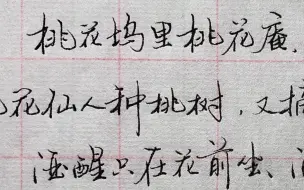 桃花坞里桃花庵.
花仙人种桃树,又摘
酒醒只在花前坐、